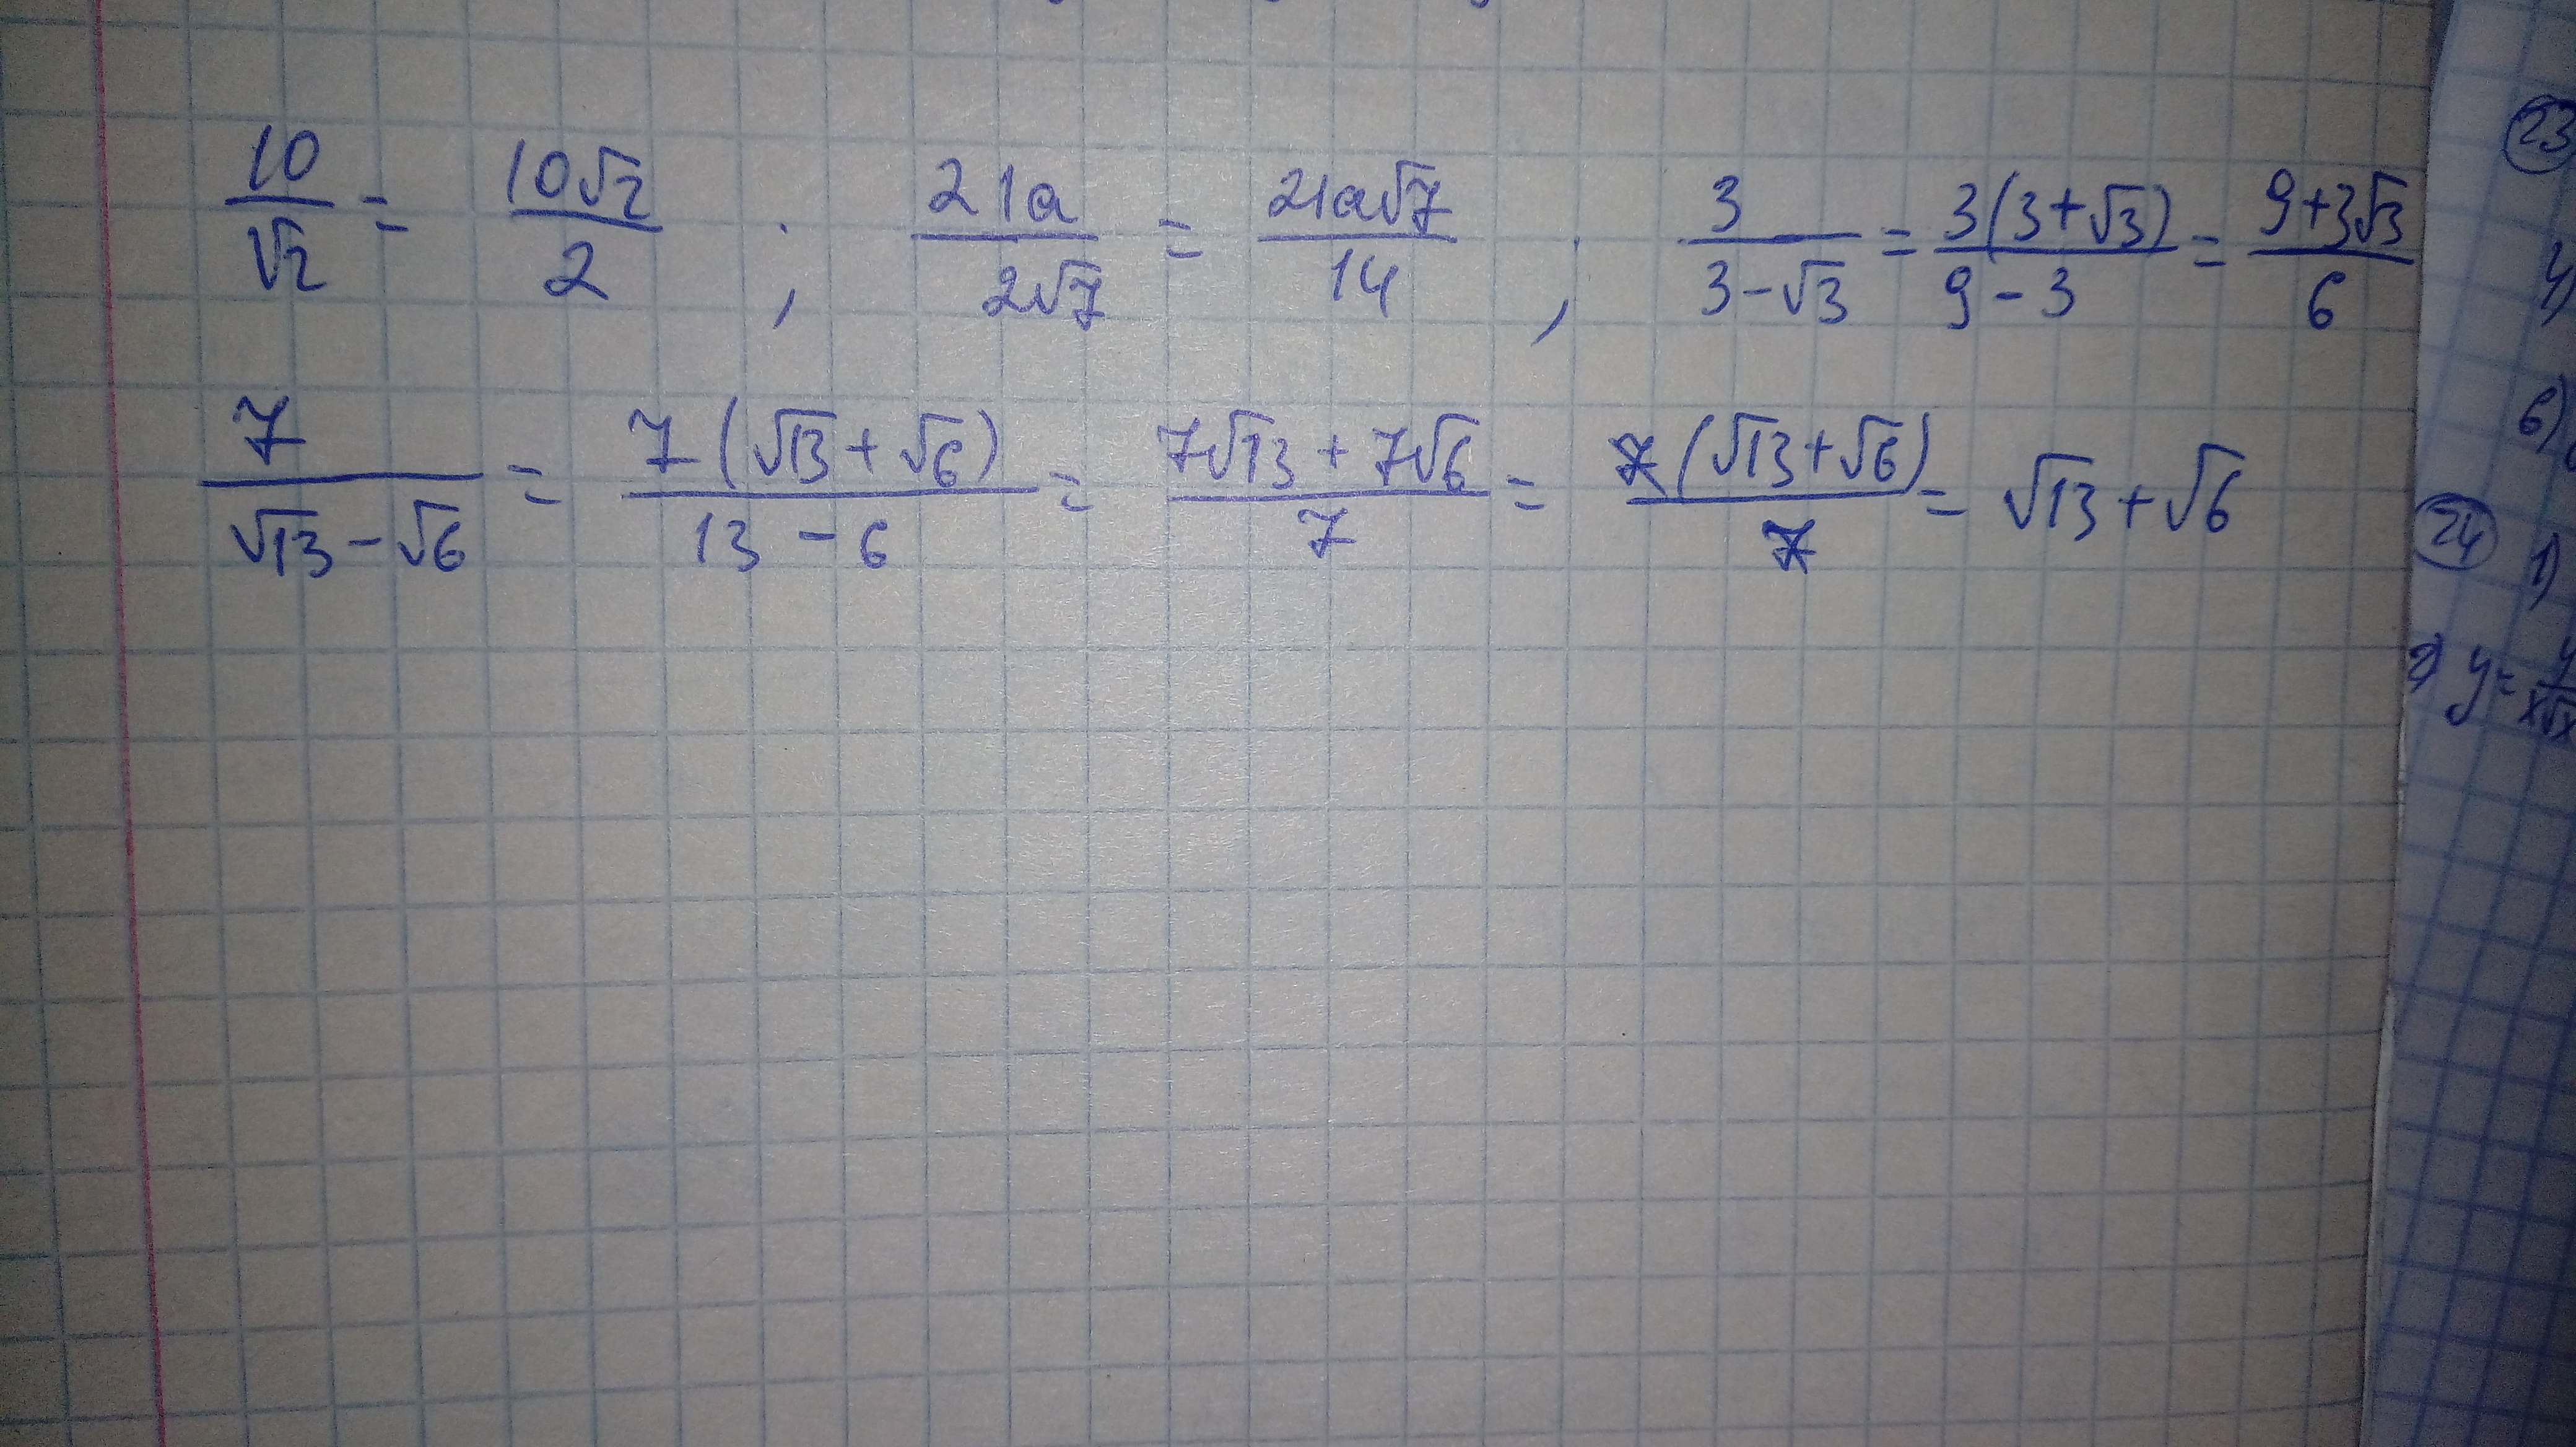 10/√2 = 10√2/2 ; 21a/2√7 = 21a√7/14 ; 3/(3-√3) = 3(3+√3)/(9-3) = (9+3√3)/6
7/(√13-√6) = 7(√13+√6)/(13-6) = (7√13+7√6)/7 = 7(√13+√6)/7 = √13+√6
23
4)
6)
24 1)
2) y=